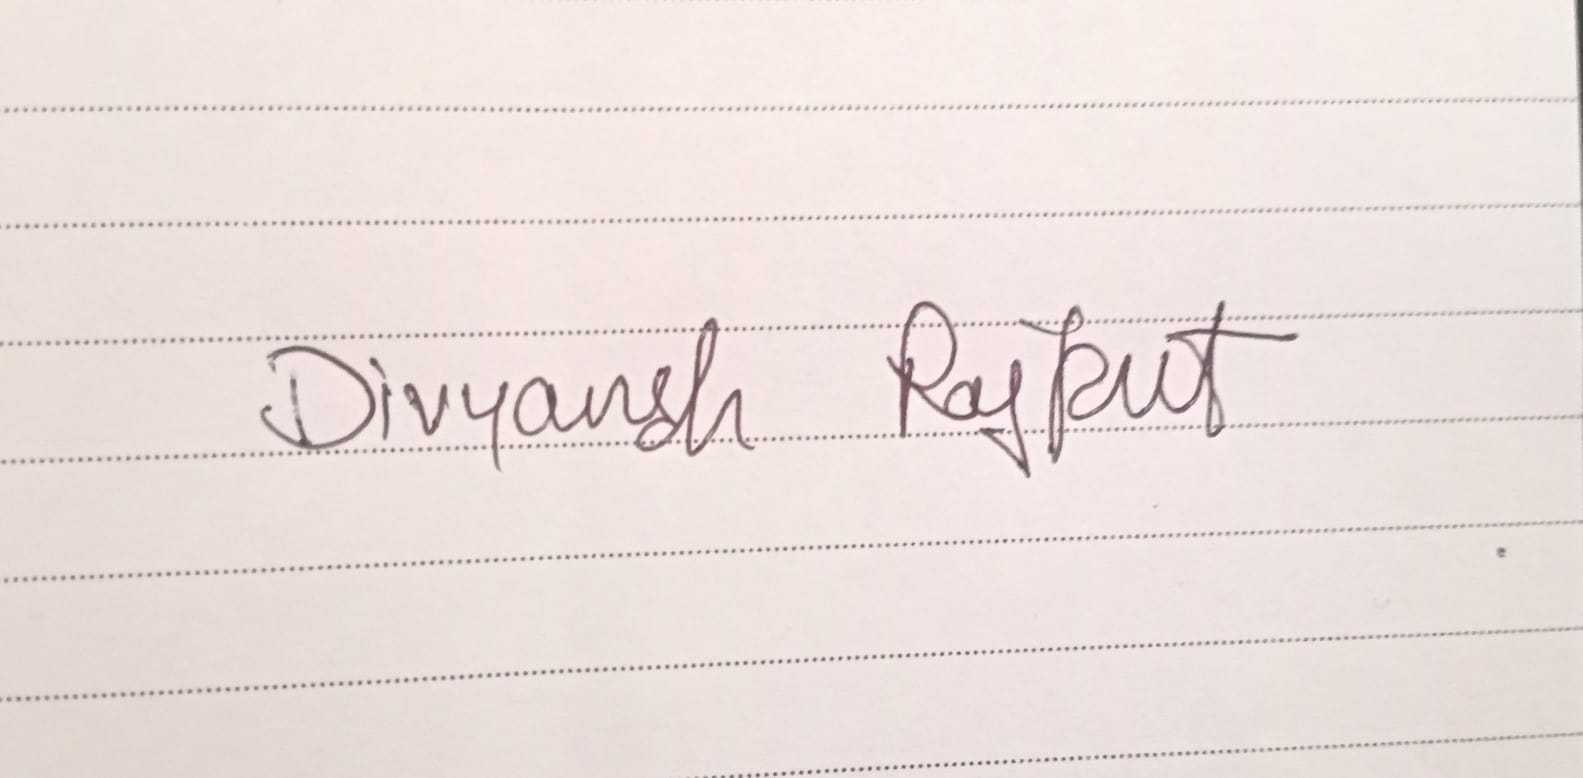 Divyansh Rajput